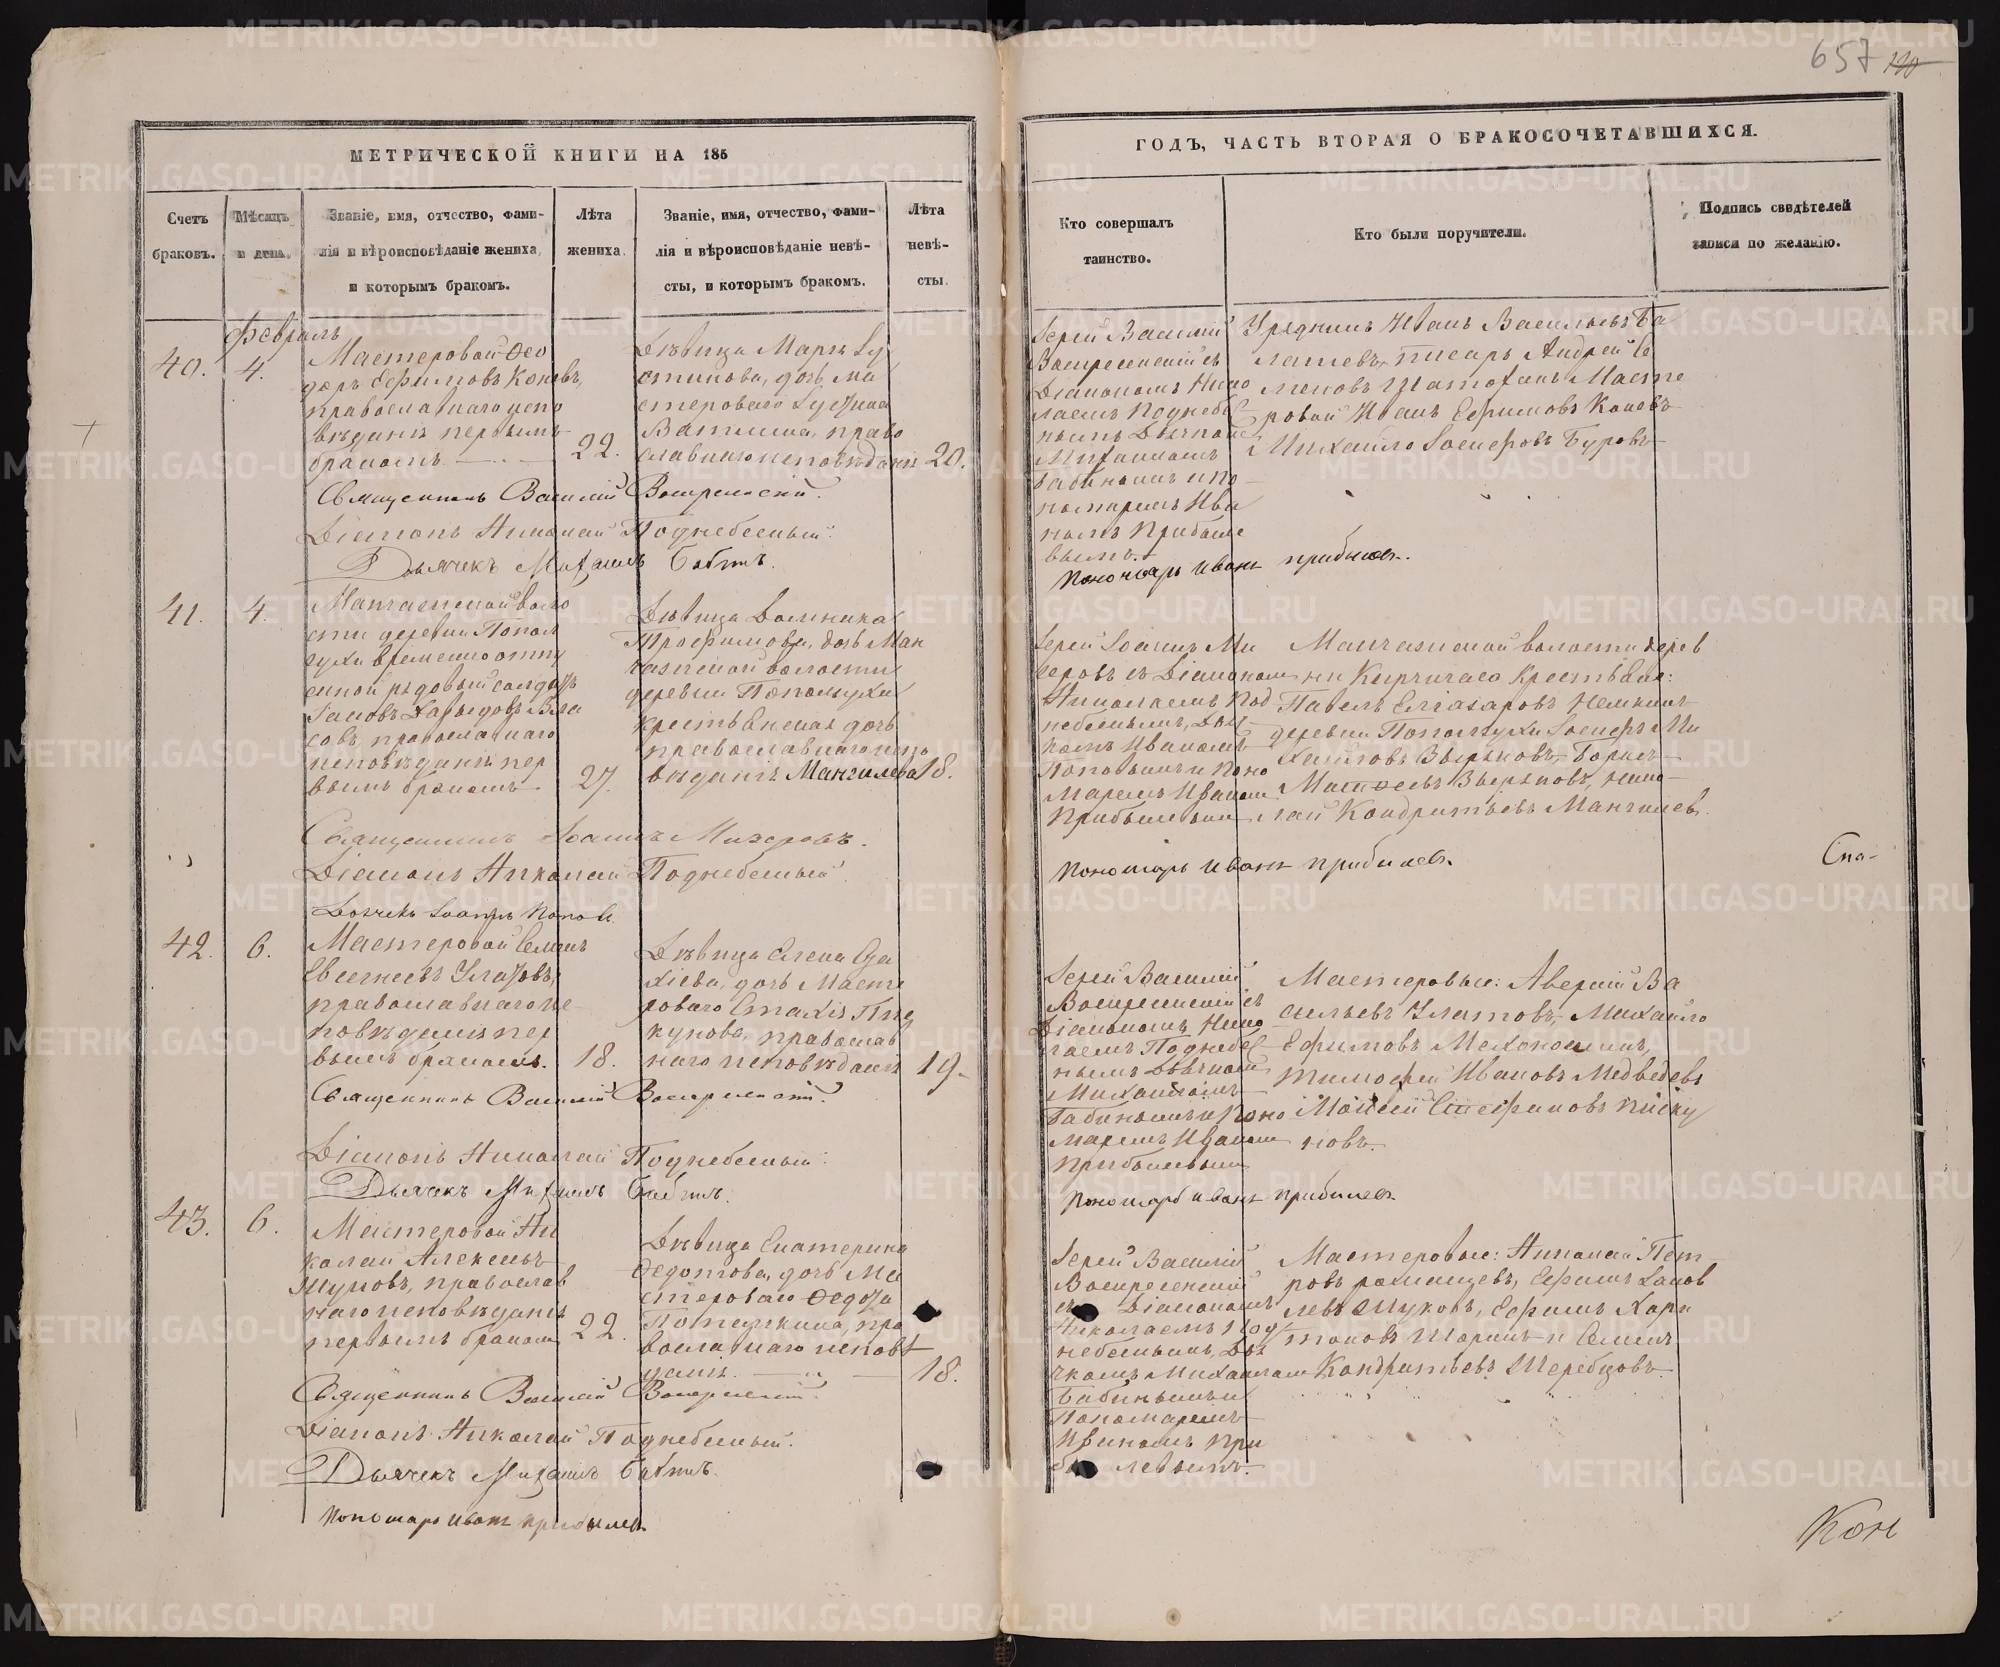 657 120
МЕТРИЧЕСКОЙ КНИГИ НА 185
ГОДЪ, ЧАСТЬ ВТОРАЯ О БРАКОСОЧЕТАВШИХСЯ.
Счетъ
браковъ.
Мѣсяцъ
и день.
Званіе, имя, отчество, фами-
лія и вѣроисповѣданіе жениха,
и которымъ бракомъ.
Лѣта
жениха.
Званіе, имя, отчество, фами-
лія и вѣроисповѣданіе невѣ-
сты, и которымъ бракомъ.
Лѣта
невѣ-
сты.
Кто совершалъ
таинство.
Кто были поручители.
Подпись свидѣтелей
записи по желанію.
Февраль
40.
4.
Мастеровой Ѳео
доръ Ефимовъ Коневъ,
православнаго испо
вѣданія первымъ
бракомъ
22.
Дѣвица Марія Іу
стинова, дочь ма
стероваго Іустина
православнаго исповѣданія
20.
Іерей Василій
Воскресенскій съ
Діакономъ Нико
лаемъ Поднебес
нымъ Дьячкомъ
Михаиломъ
Бабинымъ и по
номаремъ Ива
номъ Прибыле
вымъ.
Урядникъ Иванъ Васильевъ Ба
лашевъ, писарь Андрей Се
меновъ Шатохинъ Масте
ровой Иванъ Ефимовъ Коневъ
Михайло Іосифовъ Буровъ
Священникъ Василій Воскресенскій.
Діаконъ Николай Поднебесный.
Дьячекъ Михаилъ Бабинъ.
Пономарь Иванъ Прибылевъ.
41.
4.
Манчажской воло
сти деревни
временно отпу
щенной рядовый солдатъ
Давыдовъ Вла
совъ, православнаго
исповѣданія пер
вымъ бракомъ
27.
Дѣвица Домника
Трофимова, дочь Ман
чажской волости
деревни
крестьянская дочь
православнаго испо
вѣданія Мангилева
18.
Іерей Іоаннъ Ми
серовъ съ Діакономъ
Николаемъ Под
небеснымъ, Дьяч
комъ Иваномъ
Поповымъ и Поно
маремъ Иваномъ
Прибылевымъ
Манчажской волости дерев
ни Крестьяне:
Павелъ Елиазаровъ
деревни Іосифъ Ми
хайловъ Борисъ
Николай Кондратьевъ Мангилевъ.
Священникъ Іоаннъ Мизеровъ.
Діаконъ Николай Поднебесный.
Дьячекъ Іоаннъ Поповъ.
Пономарь Иванъ Прибылевъ.
Спа-
42.
6.
Мастеровой Семенъ
Евсигнеевъ Улатовъ,
православнаго ис
повѣданія пер
вымъ бракомъ.
18.
Дѣвица Елена Ста
хіева, дочь Масте
роваго Стахія Пис
кунова, православ
наго исповѣданія
19.
Іерей Василій
Воскресенскій съ
Діакономъ Нико
лаемъ Поднебес
нымъ Дьячкомъ
Михаиломъ
Бабинымъ и Поно
маремъ Иваномъ
Прибылевымъ
Мастеровые: Аверкій Ва
сильевъ Улатовъ, Михайло
Ефимовъ Мехоношинъ,
Тимофей Ивановъ Медведевъ
Моисей Стефановъ Писку
новъ.
Священникъ Василій Воскресенскій.
Діаконъ Николай Поднебесный.
Дьячекъ Михаилъ Бабинъ.
Пономарь Иванъ Прибылевъ.
43.
6.
Мастеровой Ни
колай Алексѣевъ
Шуковъ, православ
наго исповѣданія
первымъ бракомъ
22.
Дѣвица Екатерина
Ѳедотова, дочь Ма
стероваго Ѳедота
Потешкина, пра
вославнаго исповѣ
данія.
18.
Іерей Василій
Воскресенскій
съ Діакономъ
Николаемъ Под
небеснымъ, Дья
чкомъ Михаиломъ
Бабинымъ и
Пономаремъ
Иваномъ При
былевымъ.
Мастеровые: Николай Пет
ровъ Ефимъ Іаков
левъ Шуковъ, Ефимъ Хари
тоновъ Шоринъ и Семенъ
Кондратьевъ Жеребцовъ.
Священникъ Василій Воскресенскій.
Діаконъ Николай Поднебесный.
Дьячекъ Михаилъ Бабинъ.
Пономарь Иванъ Прибылевъ.
Кон
METRIKI.GASO-URAL.RU